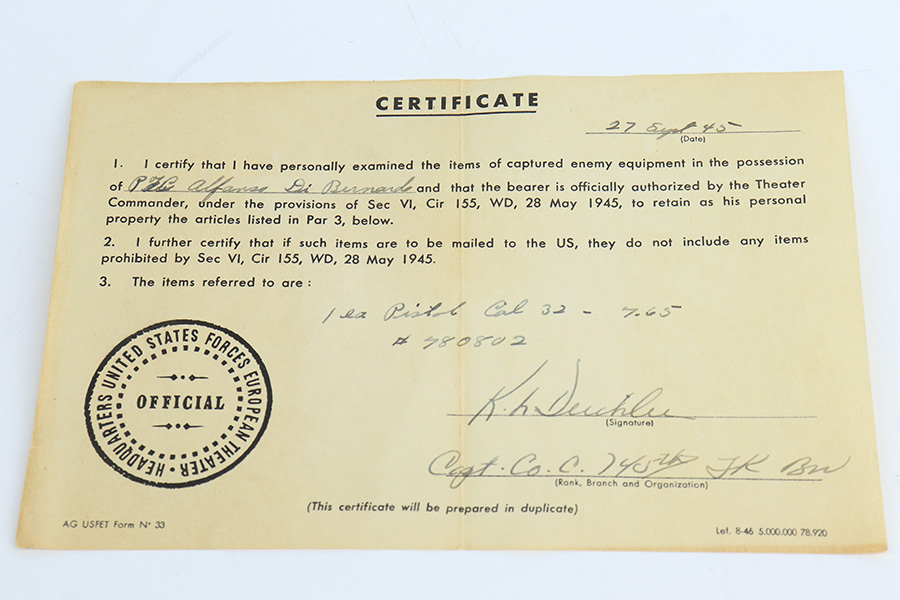 CERTIFICATE
27 Sept 45
(Date)
1. I certify that I have personally examined the items of captured enemy equipment in the possession
of Pfc Alfonso Di Bernardo and that the bearer is officially authorized by the Theater
Commander, under the provisions of Sec VI, Cir 155, WD, 28 May 1945, to retain as his personal
property the articles listed in Par 3, below.
2. I further certify that if such items are to be mailed to the US, they do not include any items
prohibited by Sec VI, Cir 155, WD, 28 May 1945.
3. The items referred to are :
1 ea Pistol Cal 32 - 7.65
# 780802
HEADQUARTERS UNITED STATES FORCES EUROPEAN THEATER
OFFICIAL
(Signature)
Capt. Co. C. 745th TK Bn
(Rank, Branch and Organization)
(This certificate will be prepared in duplicate)
AG USFET Form N° 33
Lef. 8-46 5.000.000 78.920